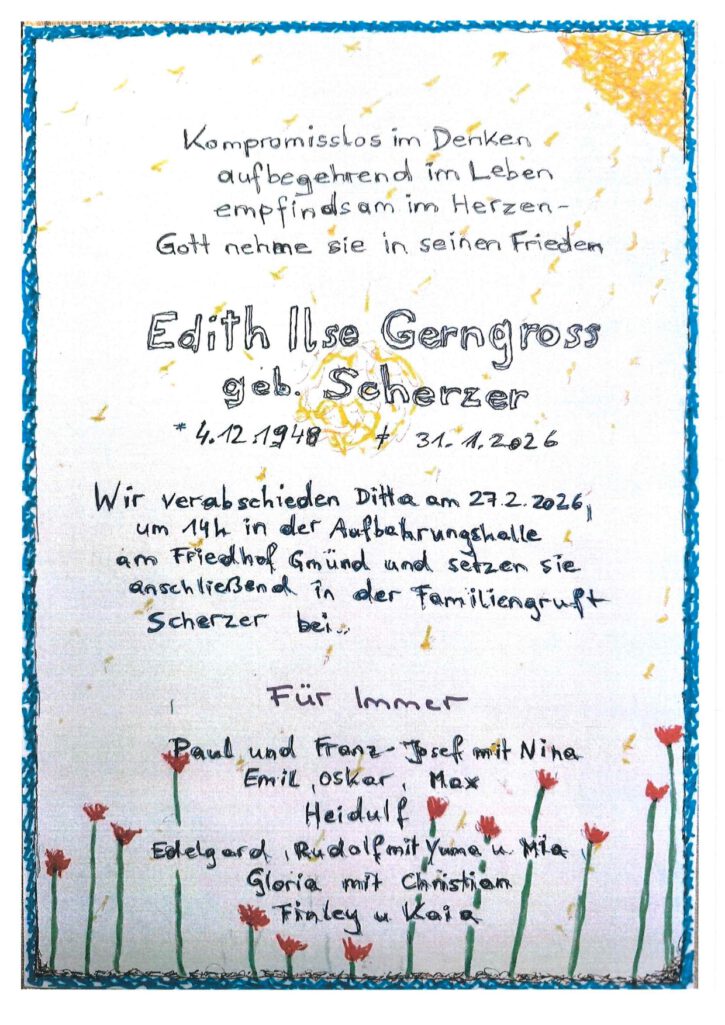 Kompromisslos im Denken
aufbegehrend im Leben
empfindsam im Herzen-
Gott nehme sie in seinen Frieden
Edith Ilse Gerngross
geb. Scherzer
* 4.12.1948 † 31.1.2026
Wir verabschieden Ditta am 27.2.2026,
um 14h in der Aufbahrungshalle
am Friedhof Gmünd und setzen sie
anschließend in der Familiengruft
Scherzer bei..
Für Immer
Paul und Franz-Josef mit Nina
Emil, Oskar, Max
Heidulf
Edelgard, Rudolf mit Yuma u. Mia
Gloria mit Christian
Finley u Kaia